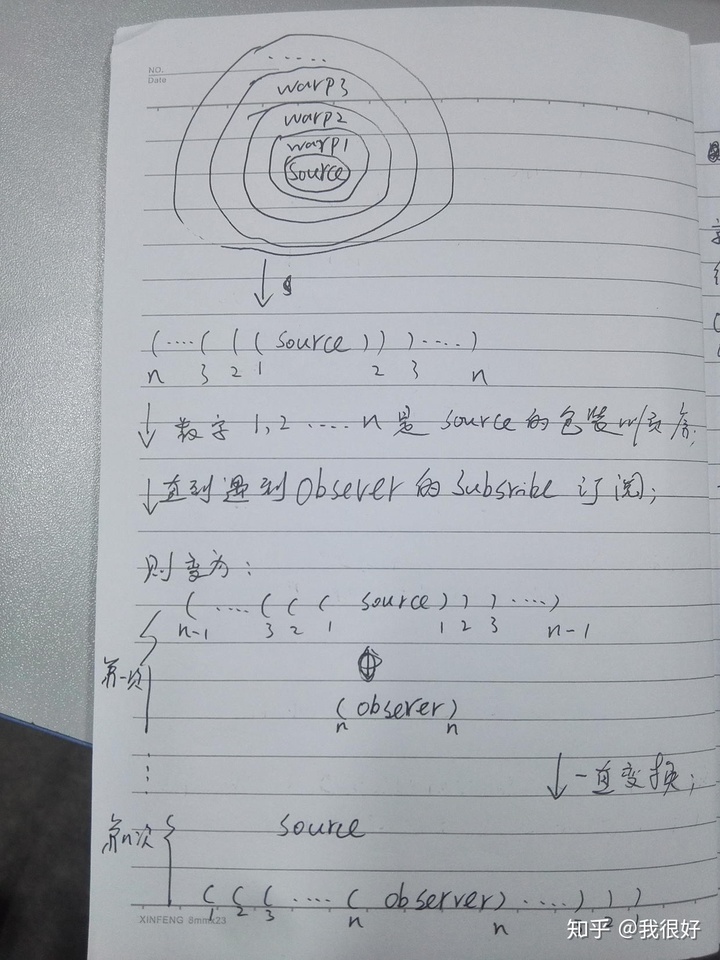 NO.
Date
......
warp3
warp2
warp1
source
(····( ( ( source ) ) )····)
n 3 2 1 2 3 n
数字1,2 ····n是 source的包装顺序;
直到遇到Observer的Subsribe订阅;
则变为:
( ····( ( ( source ) ) ) ····)
n-1 3 2 1 1 2 3 n-1
第一次
( observer )
n n
一直变换;
第n次
source
( ( ( ···· ( observer) ····) ) )
1 2 3 n n 2 1
XINFENG 8mmx23
知乎 @我很好